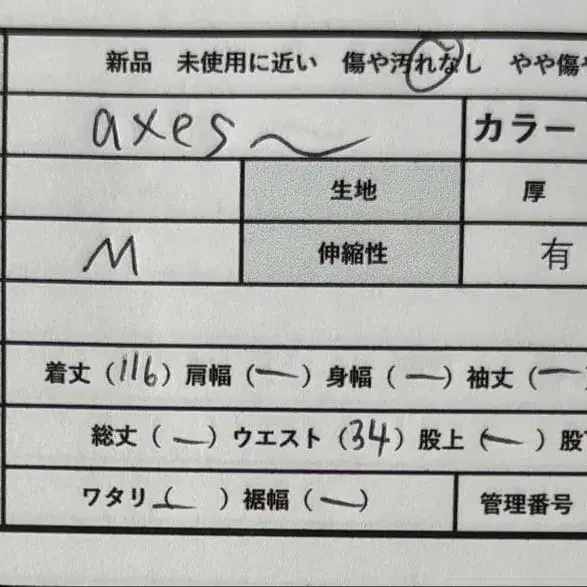 新品 未使用に近い 傷や汚れなし やや傷や
axes カラー
生地 厚
M 伸縮性 有
着丈（116）肩幅（ー）身幅（ー）袖丈（ー
総丈（ー）ウエスト（34）股上（ー）股下
ワタリ（ー ）裾幅（ー） 管理番号